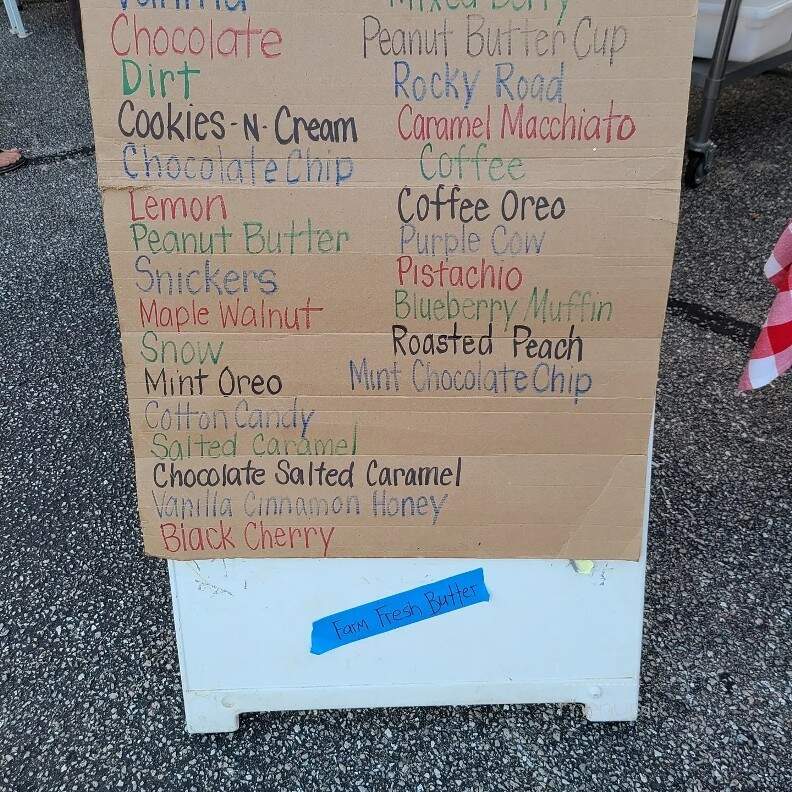 Vanilla
Chocolate
Dirt
Cookies-N-Cream
Chocolate Chip
Lemon
Peanut Butter
Snickers
Maple Walnut
Snow
Mint Oreo
Cotton Candy
Salted Caramel
Chocolate Salted Caramel
Vanilla Cinnamon Honey
Black Cherry
Mixed Berry
Peanut Butter Cup
Rocky Road
Caramel Macchiato
Coffee
Coffee Oreo
Purple Cow
Pistachio
Blueberry Muffin
Roasted Peach
Mint Chocolate Chip
Farm Fresh Butter